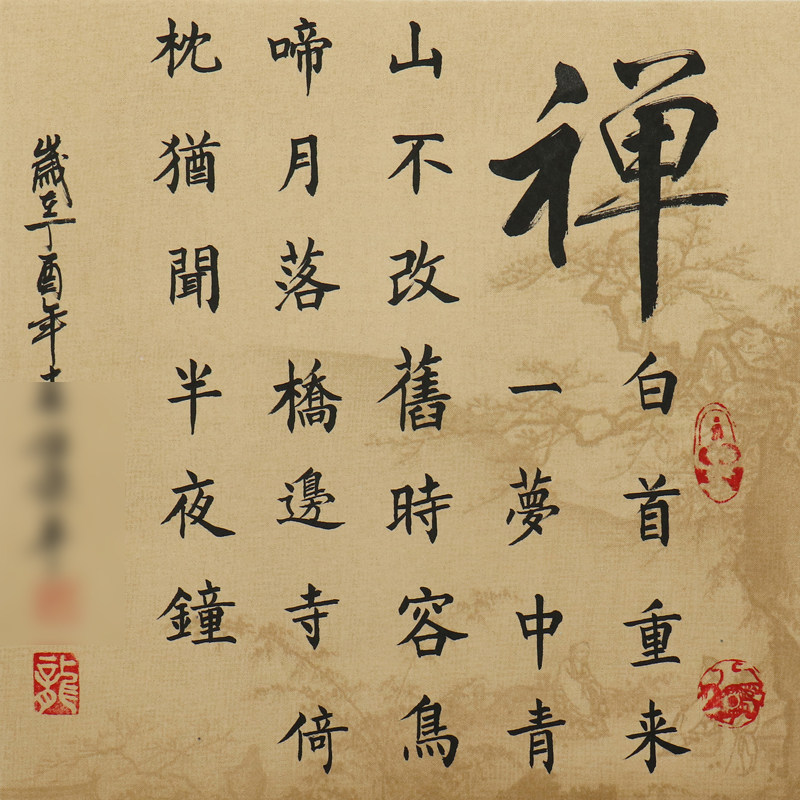 禅
白首重来
一夢中青
山不改舊時容鳥
啼月落橋邊寺倚
枕猶聞半夜鐘
歲在丁酉年
龍